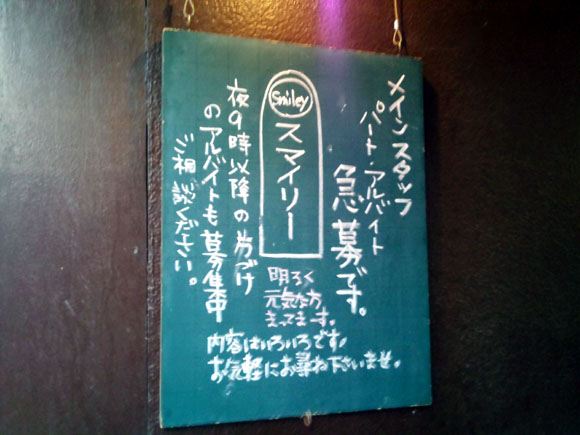 メインスタッフ
パート・アルバイト
急募です。
Smiley
スマイリー
明ろく
元気な方
まってまーす。
夜9時以降の片づけ
のアルバイトも募集中
ご相談ください。
内容はいろいろです。
お気軽にお尋ね下さいませ。